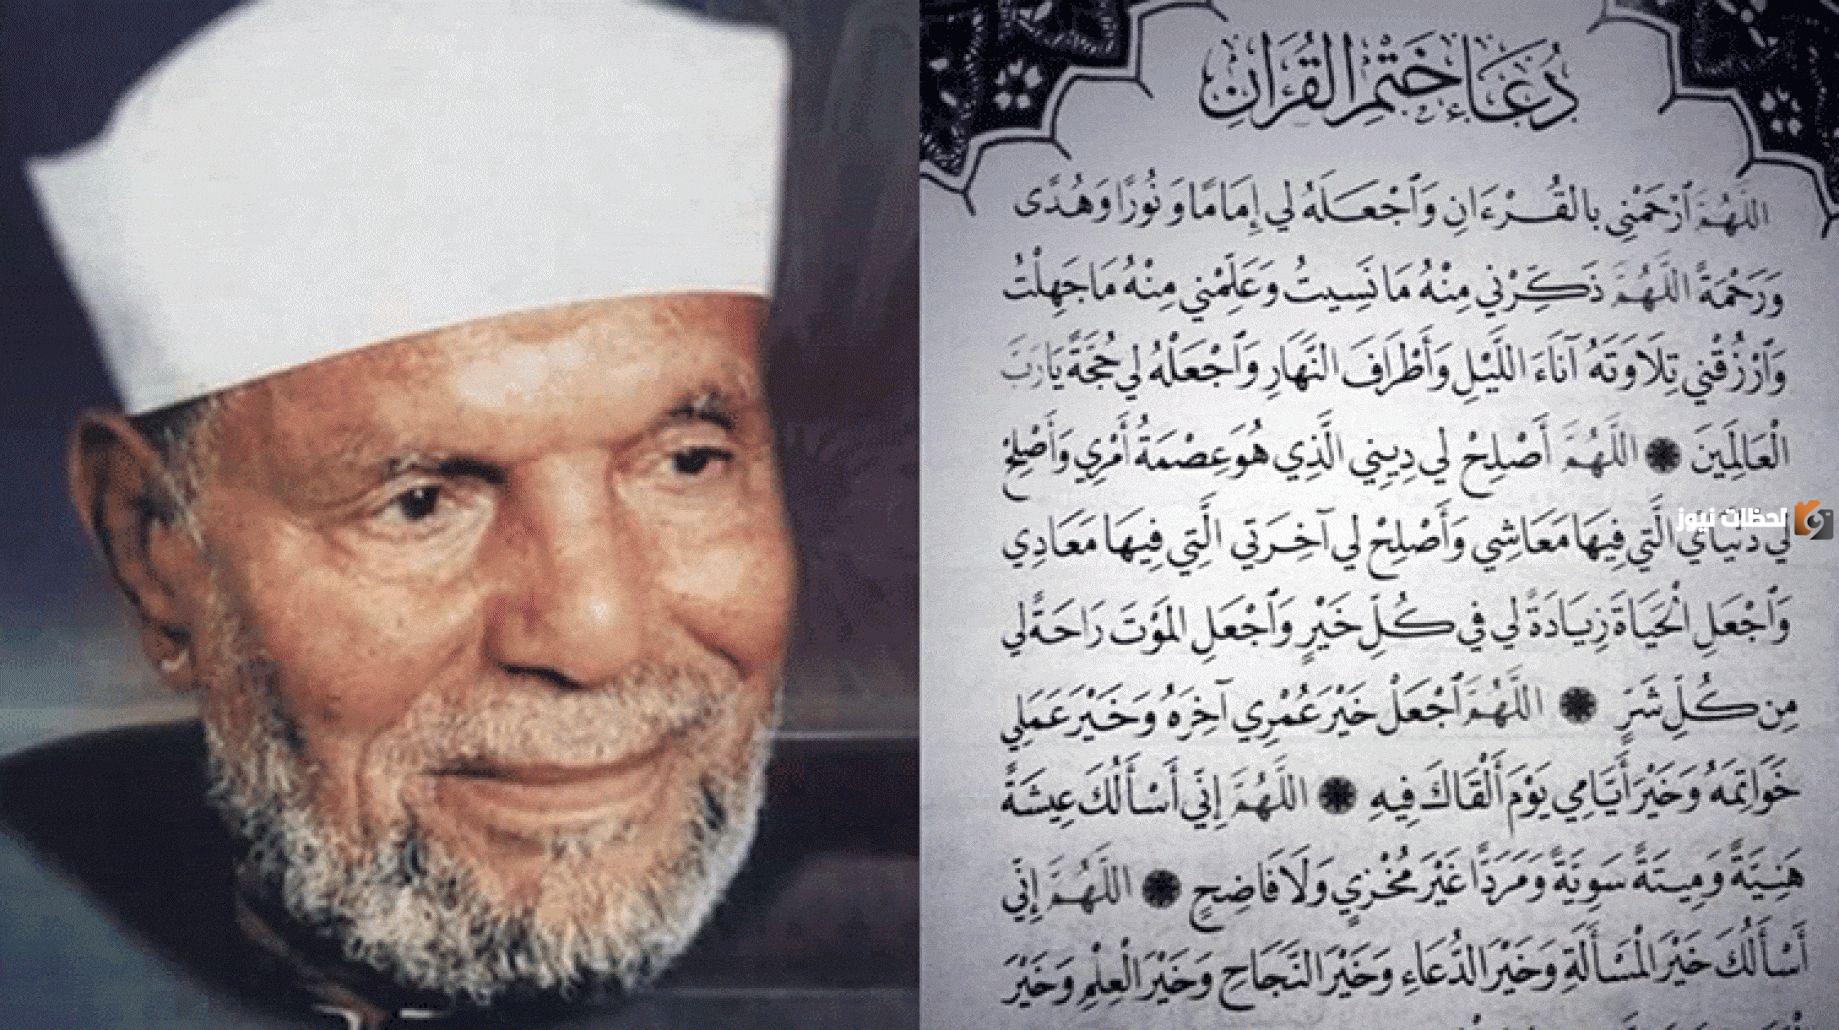 دُعَاءُ خَتْمِ الْقُرْآنِ
اللَّهُمَّ ٱرْحَمْنِي بِالقُرْءَانِ وَٱجْعَلْهُ لِي إِمَامًا وَنُورًا وَهُدًى
وَرَحْمَةً اللَّهُمَّ ذَكِّرْنِي مِنْهُ مَا نَسِيتُ وَعَلِّمْنِي مِنْهُ مَا جَهِلْتُ
وَٱرْزُقْنِي تِلَاوَتَهُ آنَاءَ اللَّيْلِ وَأَطْرَافَ النَّهَارِ وَٱجْعَلْهُ لِي حُجَّةً يَا رَبَّ
الْعَالَمِينَ ۞ اللَّهُمَّ أَصْلِحْ لِي دِينِي الَّذِي هُوَ عِصْمَةُ أَمْرِي وَأَصْلِحْ
لِي دُنْيَايَ الَّتِي فِيهَا مَعَاشِي وَأَصْلِحْ لِي آخِرَتِي الَّتِي فِيهَا مَعَادِي
لحظات نيوز
وَٱجْعَلِ الْحَيَاةَ زِيَادَةً لِي فِي كُلِّ خَيْرٍ وَٱجْعَلِ الْمَوْتَ رَاحَةً لِي
مِن كُلِّ شَرٍّ ۞ اللَّهُمَّ ٱجْعَلْ خَيْرَ عُمْرِي آخِرَهُ وَخَيْرَ عَمَلِي
خَوَاتِمَهُ وَخَيْرَ أَيَّامِي يَوْمَ أَلْقَاكَ فِيهِ ۞ اللَّهُمَّ إِنِّي أَسْأَلُكَ عِيشَةً
هَنِيَّةً وَمِيتَةً سَوِيَّةً وَمَرَدًّا غَيْرَ مُخْزِي وَلَا فَاضِحٍ ۞ اللَّهُمَّ إِنِّي
أَسْأَلُكَ خَيْرَ الْمَسْأَلَةِ وَخَيْرَ الدُّعَاءِ وَخَيْرَ النَّجَاحِ وَخَيْرَ الْعِلْمِ وَخَيْرَ